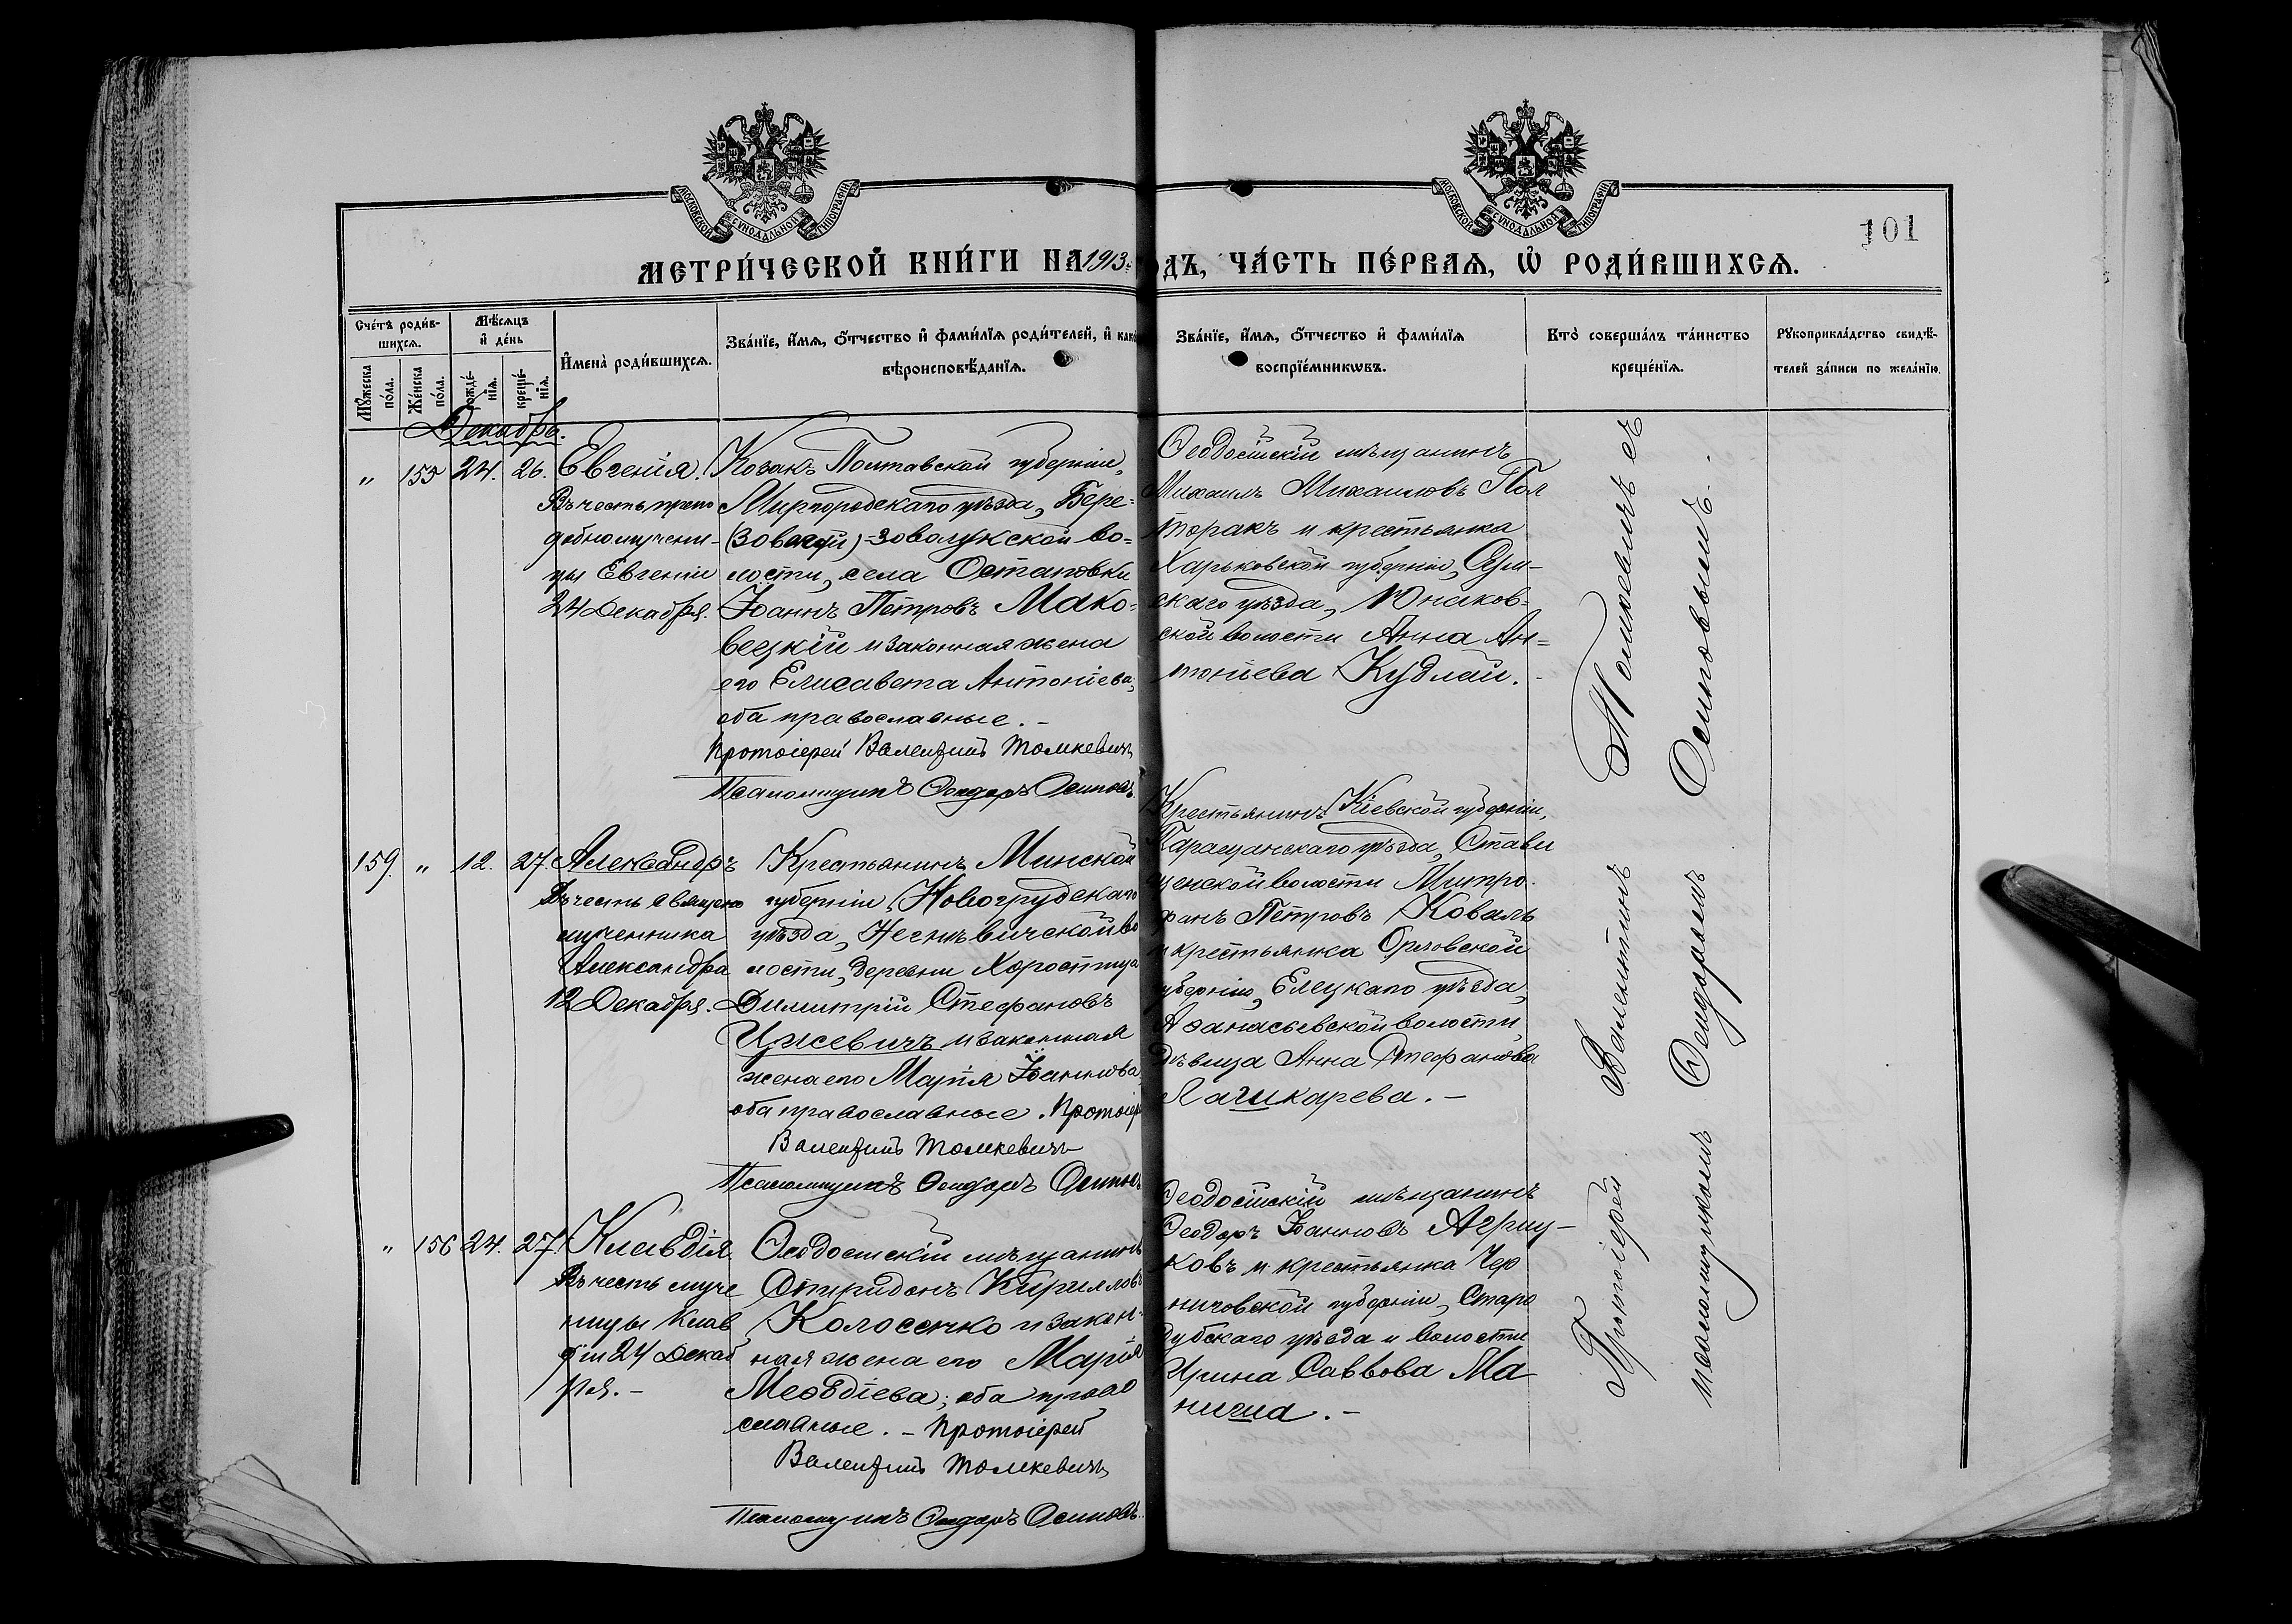 МОСКОВСКОЙ СѴНОДАЛЬНОЙ ТИПОГРАФІИ
МОСКОВСКОЙ СѴНОДАЛЬНОЙ ТИПОГРАФІИ
101
МЕТРИ́ЧЕСКОЙ КНИ́ГИ НА 1913 ДЪ, ЧА́СТЬ ПЕ́РВАѦ, Ѡ РОДИ́ВШИХСѦ.
Сче́тъ роди́в-
шихсѧ.
Мѣ́сѧцъ
и де́нь
Мꙋ́жеска по́ла.
Же́нска по́ла.
рожде́-
нїѧ.
креще́-
нїѧ.
Имена̀ роди́вшихсѧ.
Зва́нїе, и́мѧ, ѻ́тчество и фами́лїѧ роди́телей, и како
вѣроисповѣ́данїѧ.
Зва́нїе, и́мѧ, ѻ́тчество и фами́лїѧ
воспрїе́мникѡвъ.
Кто̀ соверша́лъ та́инство
креще́нїѧ.
Рꙋкоприкла́дство свидѣ́-
телей за́писи по жела́нїю.
Декабрь.
" 155 24. 26. Евгенія.
Въ честь препо
добномучени-
цы Евгеніи
24 Декабря.
Козакъ Полтавской губерніи,
Миргородскаго уѣзда, Бере=
-зоволукской во=
лости, села Остаповки
Іоаннъ Петровъ Мако=
вецкій и законная жена
его Елисавета Антоніева,
оба православные. –
Протоіерей Валентинъ Томкевичъ
Псаломщикъ Ѳеодоръ Осиповъ
Ѳеодосійскій мѣщанинъ
Михаилъ Михаиловъ Пол
торакъ и крестьянка
Харьковской губерніи, Сум-
скаго уѣзда, Юнаков=
ской волости Анна Ан=
тоніева Кудлай. -
159. " 12. 27. Александръ
Въ честь священо
мученника
Александра
12 Декабря.
Крестьянинъ Минской
губерніи, Новогрудскаго
уѣзда, Негнѣвичской во
лости, деревни Хоростица
Димитрій Стефановъ
Ицкевичъ и законная
жена его Марія Іоаннова
оба православные. Протоіер
Валентинъ Томкевичъ
Псаломщикъ Ѳеодоръ Осиповъ
Крестьянинъ Кіевской губерніи,
Таращанскаго уѣзда, Стави
щенской волости Митро
фанъ Петровъ Коваль
и крестьянка Орловской
губерніи, Елецкаго уѣзда,
Аѳанасьевской волости
дѣвица Анна Стефанова
Лашкарева. –
" 156 24. 27. Клавдія
Въ честь муче
ницы Клав
діи 24 Декаб
ря. –
Ѳеодосійскій мѣщанинъ
Спиридонъ Кирилловъ
Колосенко и закон-
ная жена его Марія
Меѳодіева; оба право
славные. – Протоіерей
Валентинъ Томкевичъ
Псаломщикъ Ѳеодоръ Осиповъ.
Ѳеодосійскій мѣщанинъ
Ѳеодоръ Іоанновъ Агриц-
ковъ и крестьянка Чер
ниговской губерніи, Старо
дубскаго уѣзда и волости
Ирина Саввова Ма
ница. –
Протоіерей Валентинъ Томкевичъ съ
псаломщикомъ Ѳеодоромъ Осиповымъ.